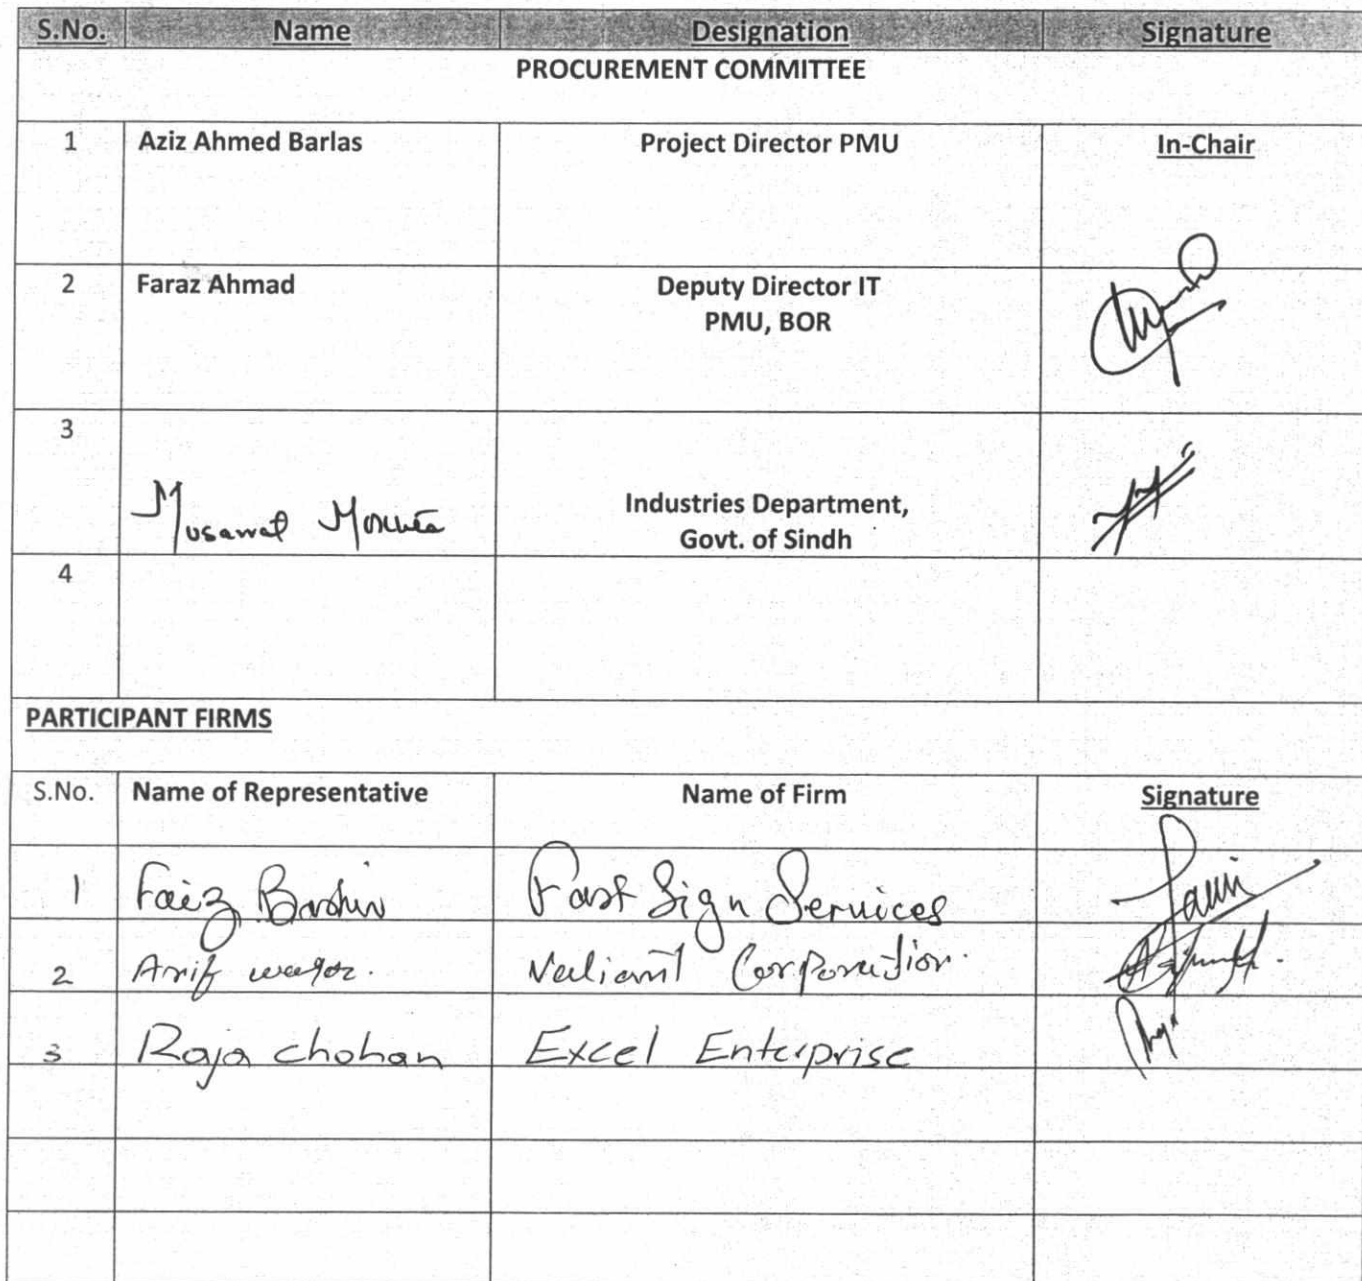 S.No. Name Designation Signature
PROCUREMENT COMMITTEE
1 Aziz Ahmed Barlas Project Director PMU In-Chair
2 Faraz Ahmad Deputy Director IT
PMU, BOR
3
Musawat Industries Department,
Govt. of Sindh
4
PARTICIPANT FIRMS
S.No. Name of Representative Name of Firm Signature
1 Faiz Bashir Fast Sign Services
2 Arif Valiant Corporation.
3 Raja chohan Excel Enterprise